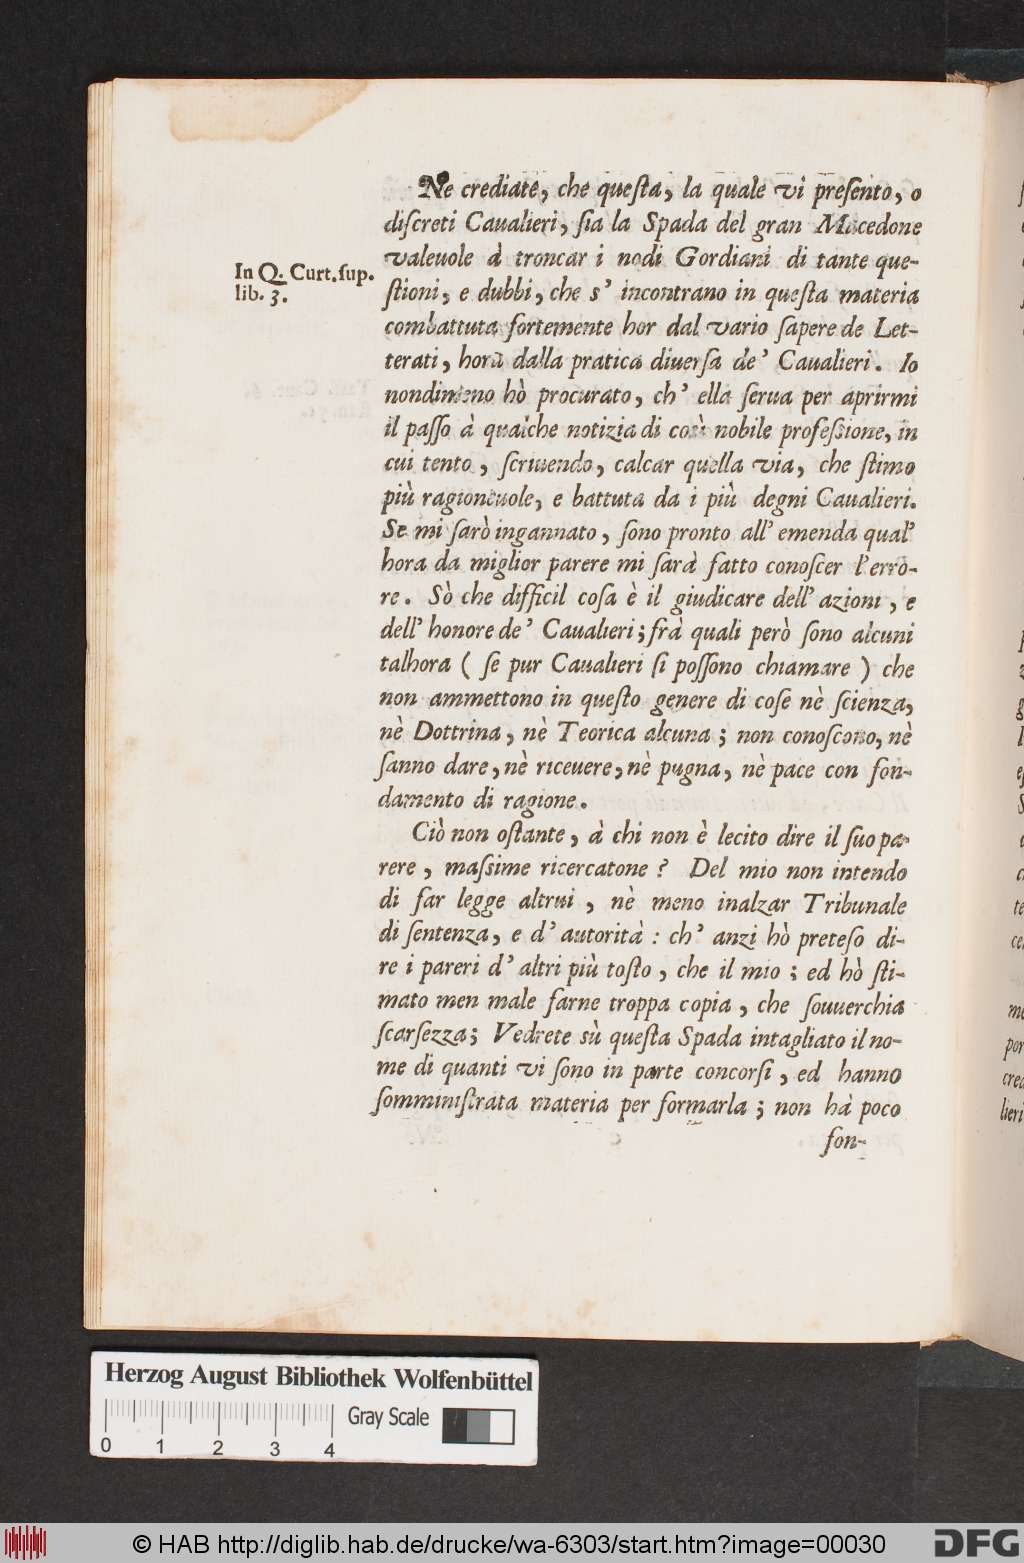 Ne crediate, che queſta, la quale vi preſento, o
diſcreti Caualieri, ſia la Spada del gran Macedone
valeuole à troncar i nodi Gordiani di tante que-
ſtioni, e dubbi, che s' incontrano in queſta materia
combattuta fortemente hor dal vario ſapere de Let-
terati, hora dalla pratica diuerſa de' Caualieri. Io
nondimeno hò procurato, ch' ella ſerua per aprirmi
il paſſo à qualche notizia di così nobile profeſsione, in
cui tento, ſcriuendo, calcar quella via, che ſtimo
più ragioneuole, e battuta da i più degni Caualieri.
Se mi ſarò ingannato, ſono pronto all' emenda qual'
hora da miglior parere mi ſarà fatto conoſcer l'erro-
re. Sò che difficil coſa è il giudicare dell' azioni, e
dell' honore de' Caualieri; frà quali però ſono alcuni
talhora ( ſe pur Caualieri ſi poſſono chiamare ) che
non ammettono in queſto genere di coſe nè ſcienza,
nè Dottrina, nè Teorica alcuna; non conoſcono, nè
ſanno dare, nè riceuere, nè pugna, nè pace con fon-
damento di ragione.
Ciò non oſtante, à chi non è lecito dire il ſuo pa-
rere, maſsime ricercatone? Del mio non intendo
di far legge altrui, nè meno inalzar Tribunale
di ſentenza, e d' autorità: ch' anzi hò preteſo di-
re i pareri d' altri più toſto, che il mio; ed hò ſti-
mato men male farne troppa copia, che ſouuerchia
ſcarſezza; Vedrete sù queſta Spada intagliato il no-
me di quanti vi ſono in parte concorſi, ed hanno
ſomminiſtrata materia per formarla; non hà poco
fon-
In Q. Curt. ſup.
lib. 3.
Herzog August Bibliothek Wolfenbüttel
Gray Scale
0 1 2 3 4
© HAB http://diglib.hab.de/drucke/wa-6303/start.htm?image=00030
DFG